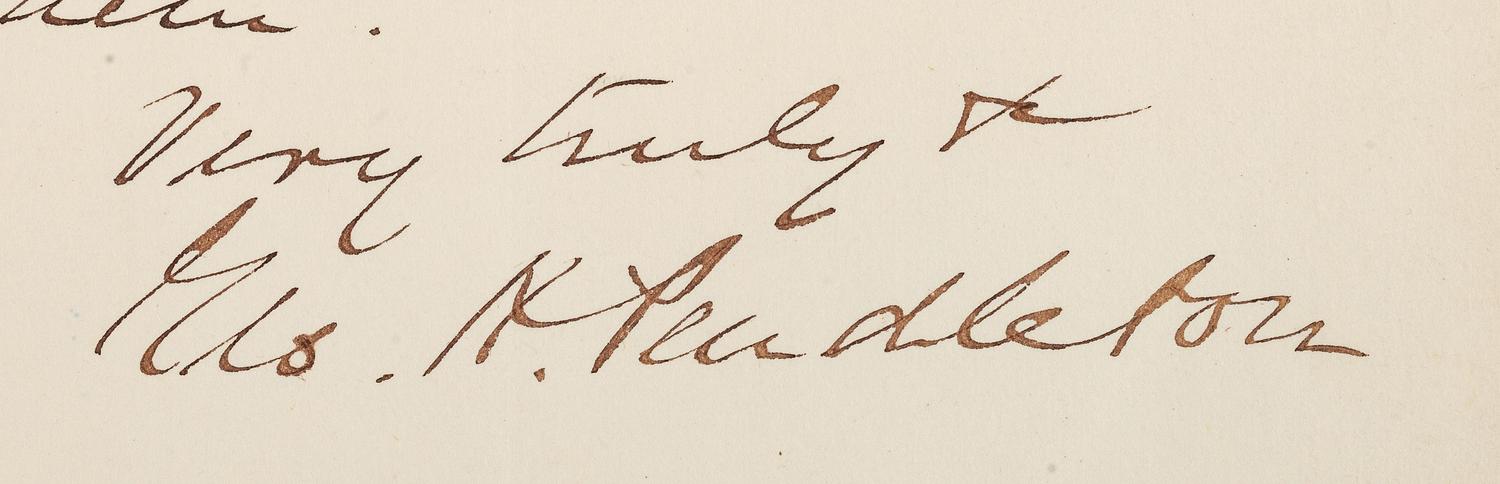 Very truly &
Geo. H. Pendleton